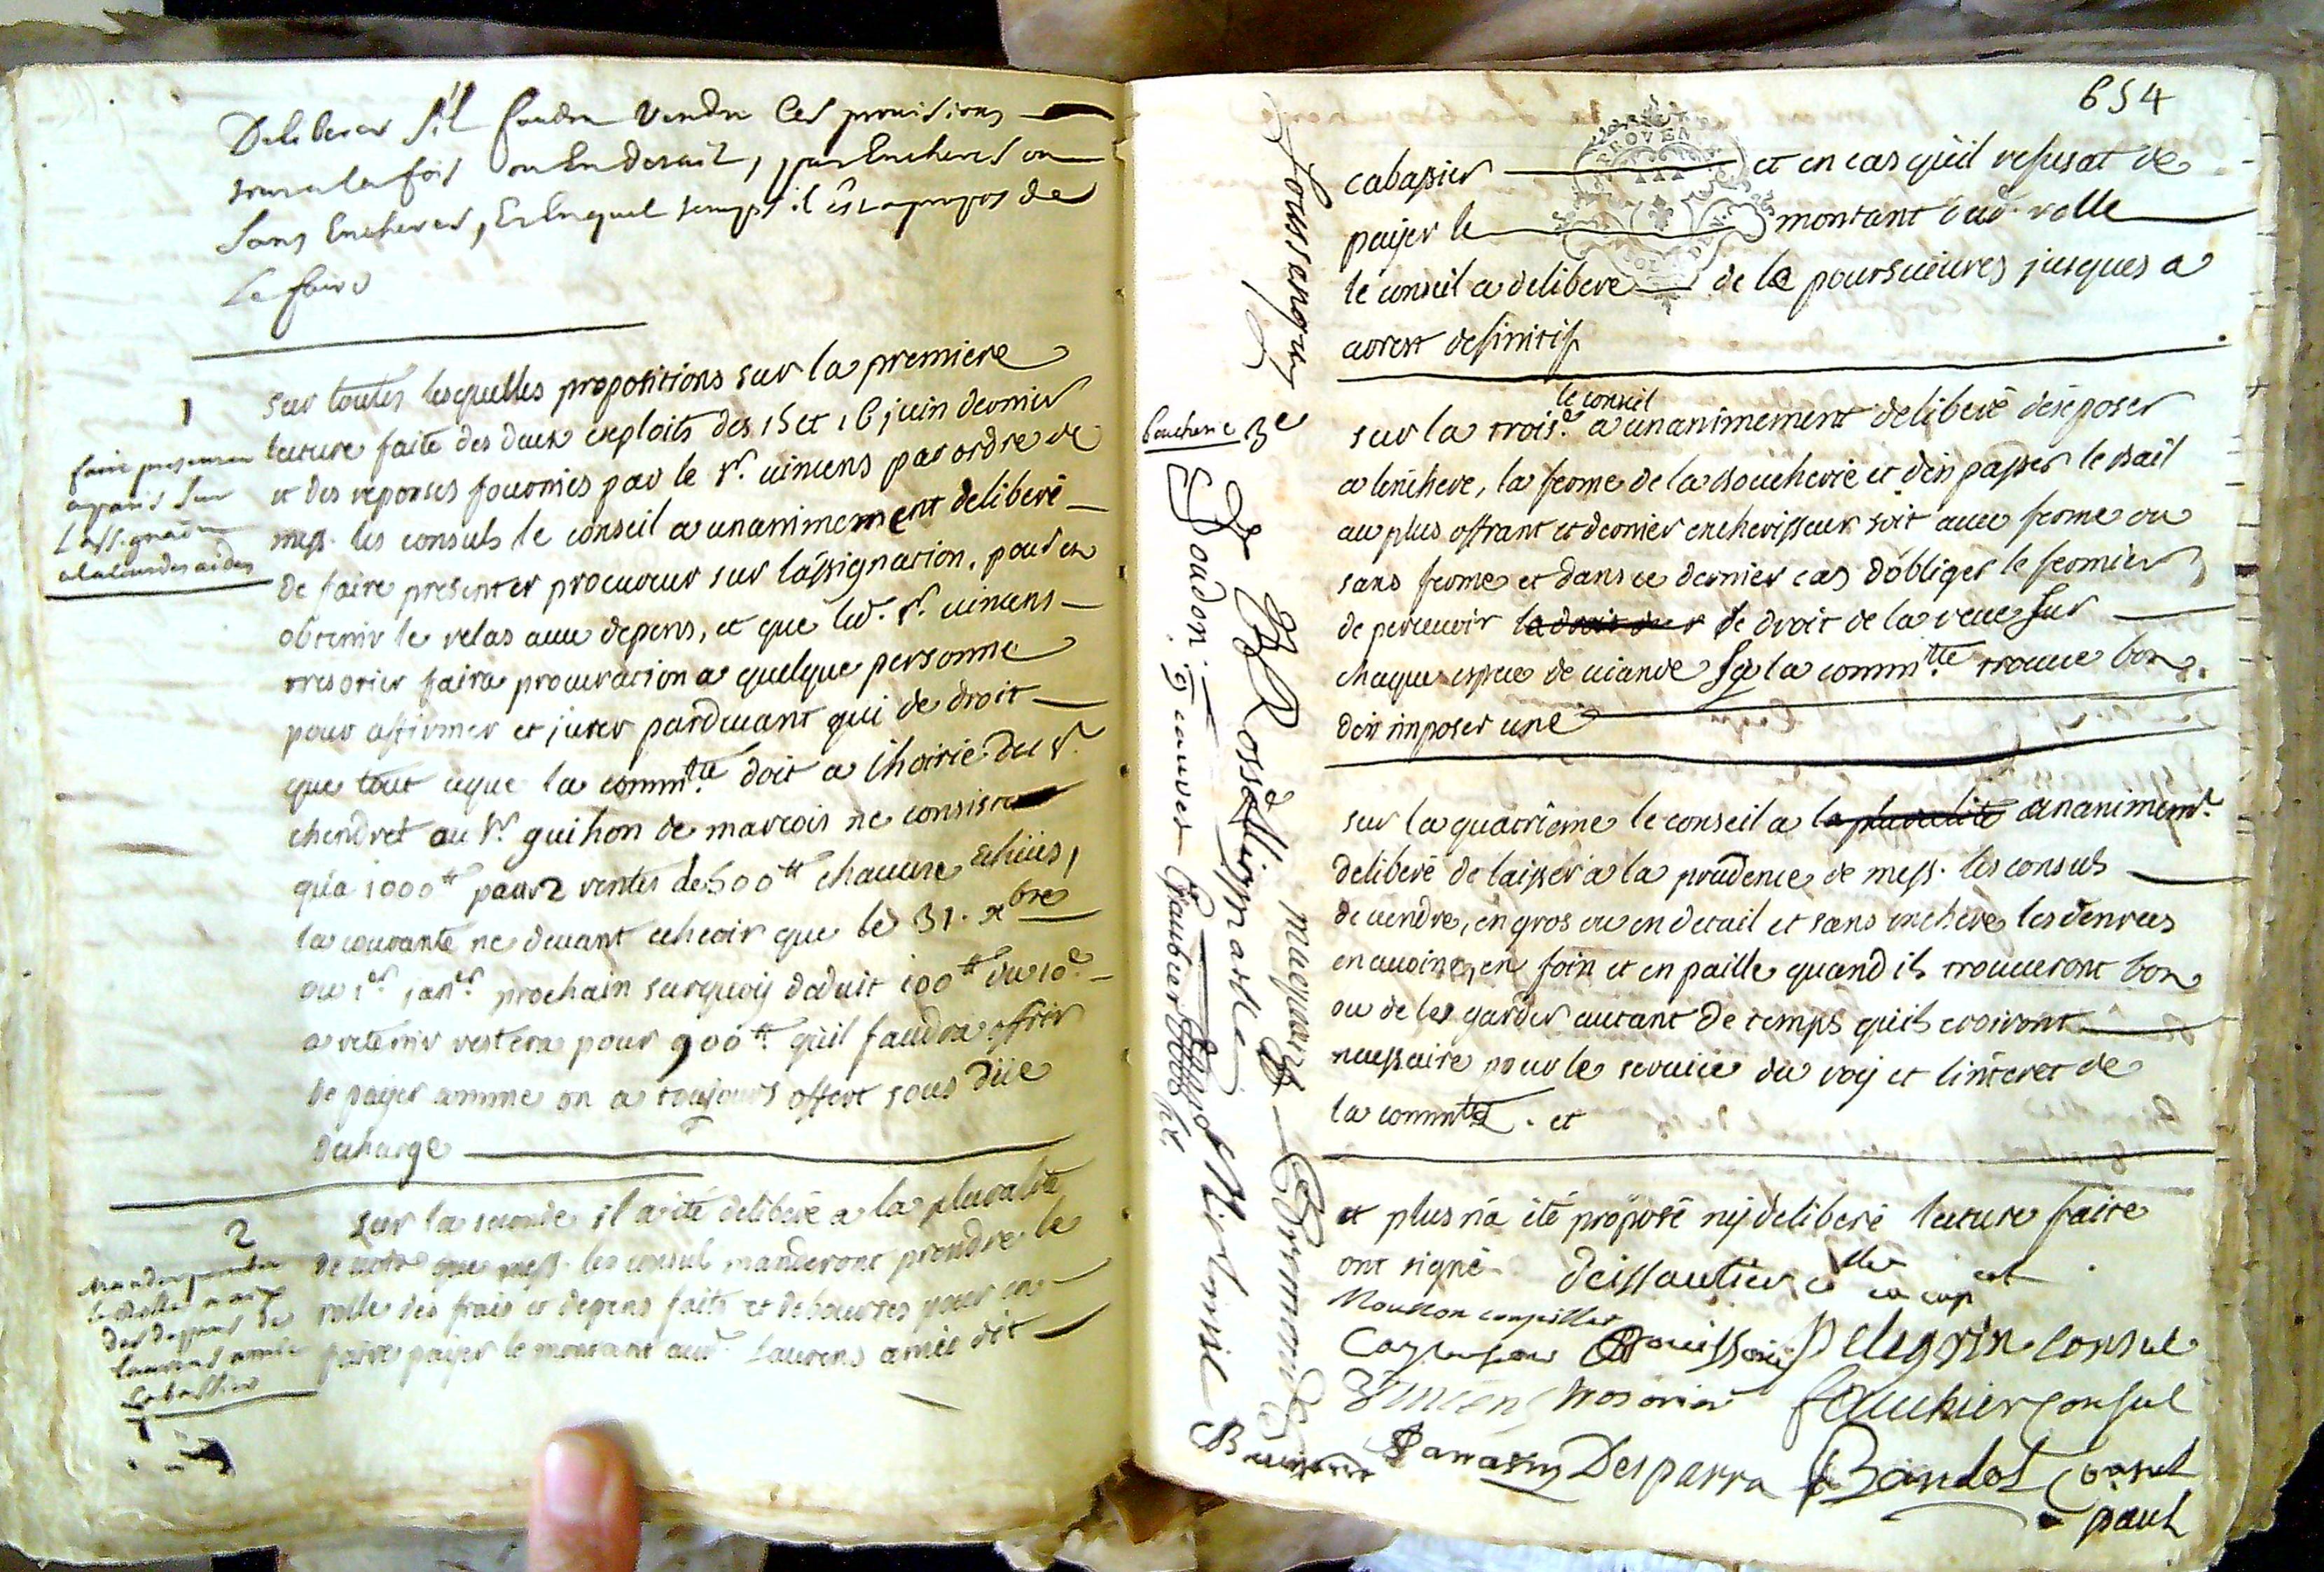 Deliberer s'il faudra Vendre Ces provisions
tout a la fois ou En detail, par Encheres ou
Sans Encheres, Et En quel temps il est apropos de
Le faire
1
faire presenter
a paris Sur
L'assignaon
a la cour des aides
sur toutes lesquelles propositions sur la premiere
lecture faite des deux exploits des 15 et 16 juin dernier
et des reponses fournies par le sr. vincens par ordre de
mess. les consuls le conseil a unanimement deliberé
de faire presenter procureur sur l'assignation, pour en
obtenir le relax avec depens, et que led. sr. vincens
tresorier faira procuration a quelque personne
pour affirmer et jurer pardevant qui de droit
que tout ceque la commtté doit a l'hoirie du sr.
chendret au sr. guihon de marcois ne consiste
qu'a 1000tt pour 2 rentes de 500tt chacune echües,
la courante ne devant echeoir que le 31. xbre
ou 1er janer prochain surquoy deduit 100tt du 10e
a retenir restera pour 900tt qu'il faudra offrir
de payer comme on a toujours offert sous düe
decharge
2
Mander prendre
le Rolle
des depens de
laurens amic
Cabassier
sur la seconde il a été deliberé a la pluralité
de voix que mess. les consuls manderont prendre le
rolle des frais et depens faits et debourses pour en
faire payer le montant aud. Laurens amic dit
654
cabassier et en cas qu'il refusat de
payer le montant dud. rolle
le conseil a deliberé de le poursuivres jusques a
arrest definitif
boucherie
3e
sur la trois.e le conseil a unanimement deliberé d'exposer
a l'enchere, la ferme de la boucherie et d'en passer le bail
au plus offrant et dernier encherisseur soit avec ferme ou
sans ferme et dans ce dernier cas d'obliger le fermier
de percevoir le droit de la reve sur
chaque espece de viande sy la commtté trouve bon
d'en imposer une
sur la quatrieme le conseil a la pluralité unanimemt.
deliberé de laisser a la prudence de mess. les consuls
de vendre, en gros ou en detail et sans enchere les denrees
en avoine, en foin et en paille quand ils trouveront bon
ou de les garder autant de temps qu'ils croiront
necessaire pour le service du roy et l'interet de
la commtté. et
et plus n'a été proposé ny deliberé lecture faite
ont signé
deissautier
Mouton conseiller
Pelegrin Consul
Vincens tresorier
fauchier Consul
Barrasin
Desparra
Bandol Consul
paul
PROVEN